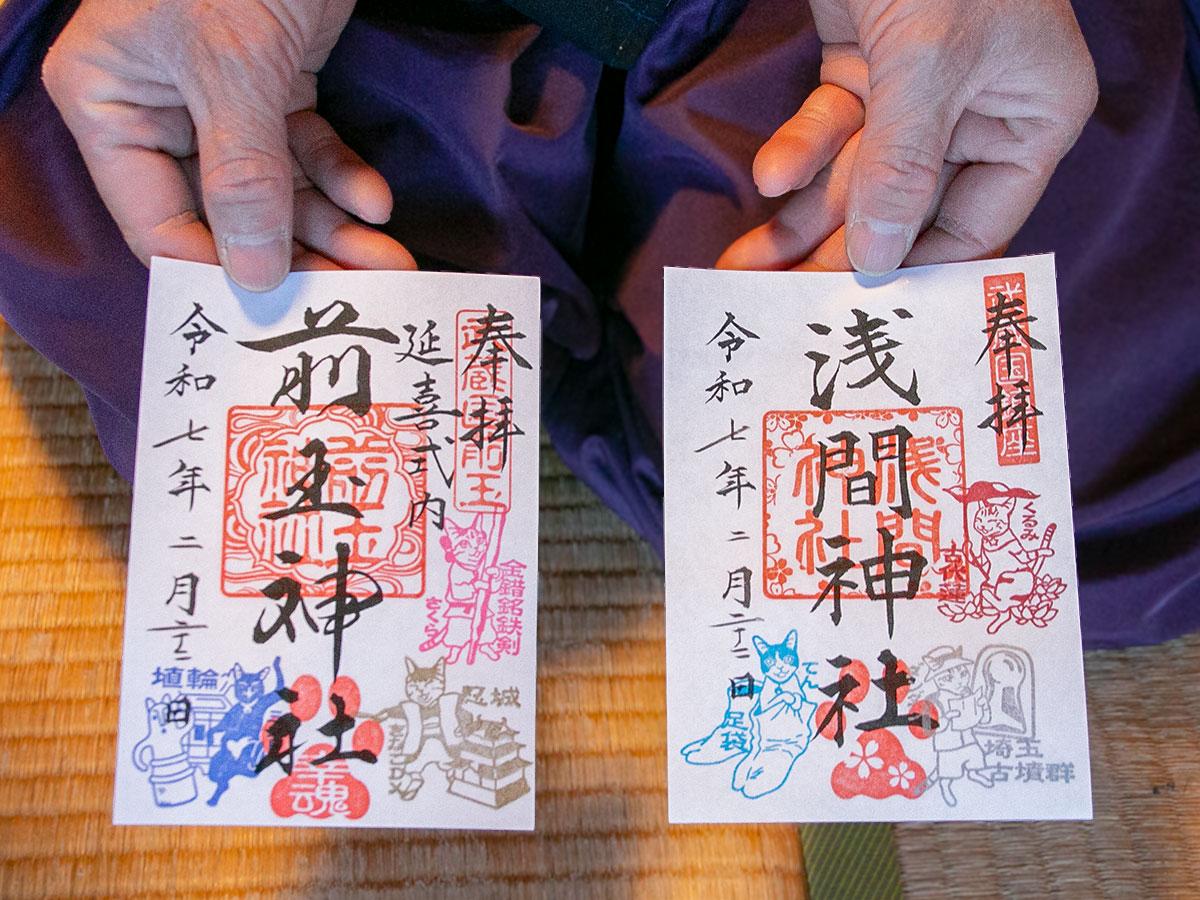 奉拝
延喜式内
前玉神社
令和七年二月二十二日
前玉神社
金錯銘鉄剣
さくら
忍城
埴輪
幸魂
奉拝
浅間神社
令和七年二月二十二日
浅間神社
くるみ
古代蓮
てん
足袋
埼玉
古墳群